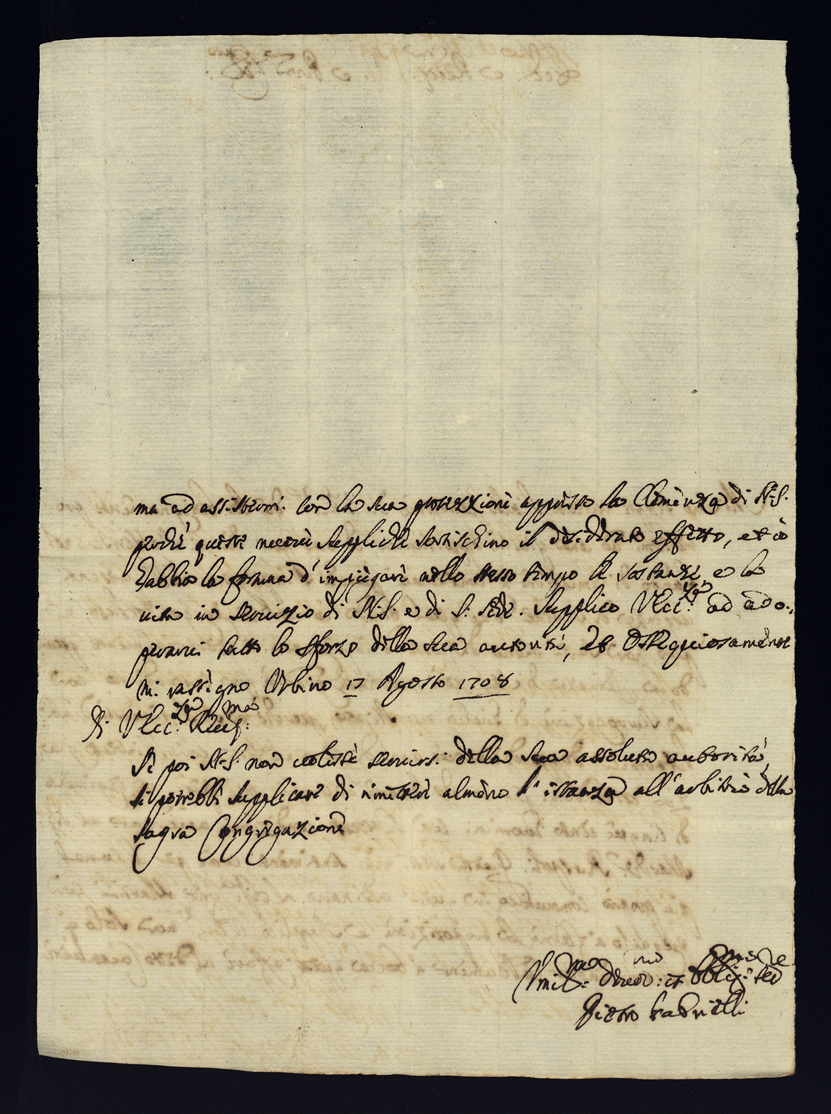 ma ad assistermi con la sua protezzione appresso la Clemenza di N.S.
perche queste nostre suppliche sortischino il desiderato effetto, et io
habbia la fortuna d'impiegare nello stesso tempo le sostanze, e la
vita in servizio di N.S. e di S. Sede. Supplico V. Ecc.za ad ado-
perarci tutto lo sforzo della sua autorità, et ossequiosamente
mi rassegno Urbino 17 Agosto 1708
Di V. Ecc.za Rev.ma
Se poi N.S. non volesse servirsi della sua assoluta autorità,
si potrebbe supplicare di rimettere almeno l'istanza all'arbitrio della
sagra Congregazione
Umil.mo Devot.mo et Obblig.mo Ser.re
Pietro Gabrielli